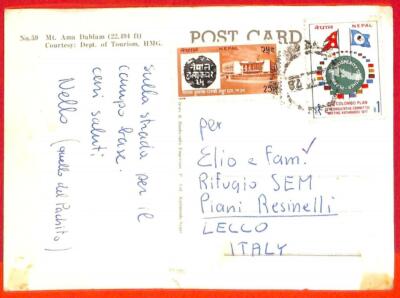 No.59 Mt. Ama Dablam (22,494 ft)
Courtesy: Dept. of Tourism, HMG.
POST CARD
sulla strada per il
campo base.
cari saluti
Nello (quello del Pachito)
per
Elio e Fam.
Rifugio SEM
Piani Resinelli
LECCO
ITALY
नेपाल NEPAL
नेपाल
NEPAL
COLOMBO PLAN